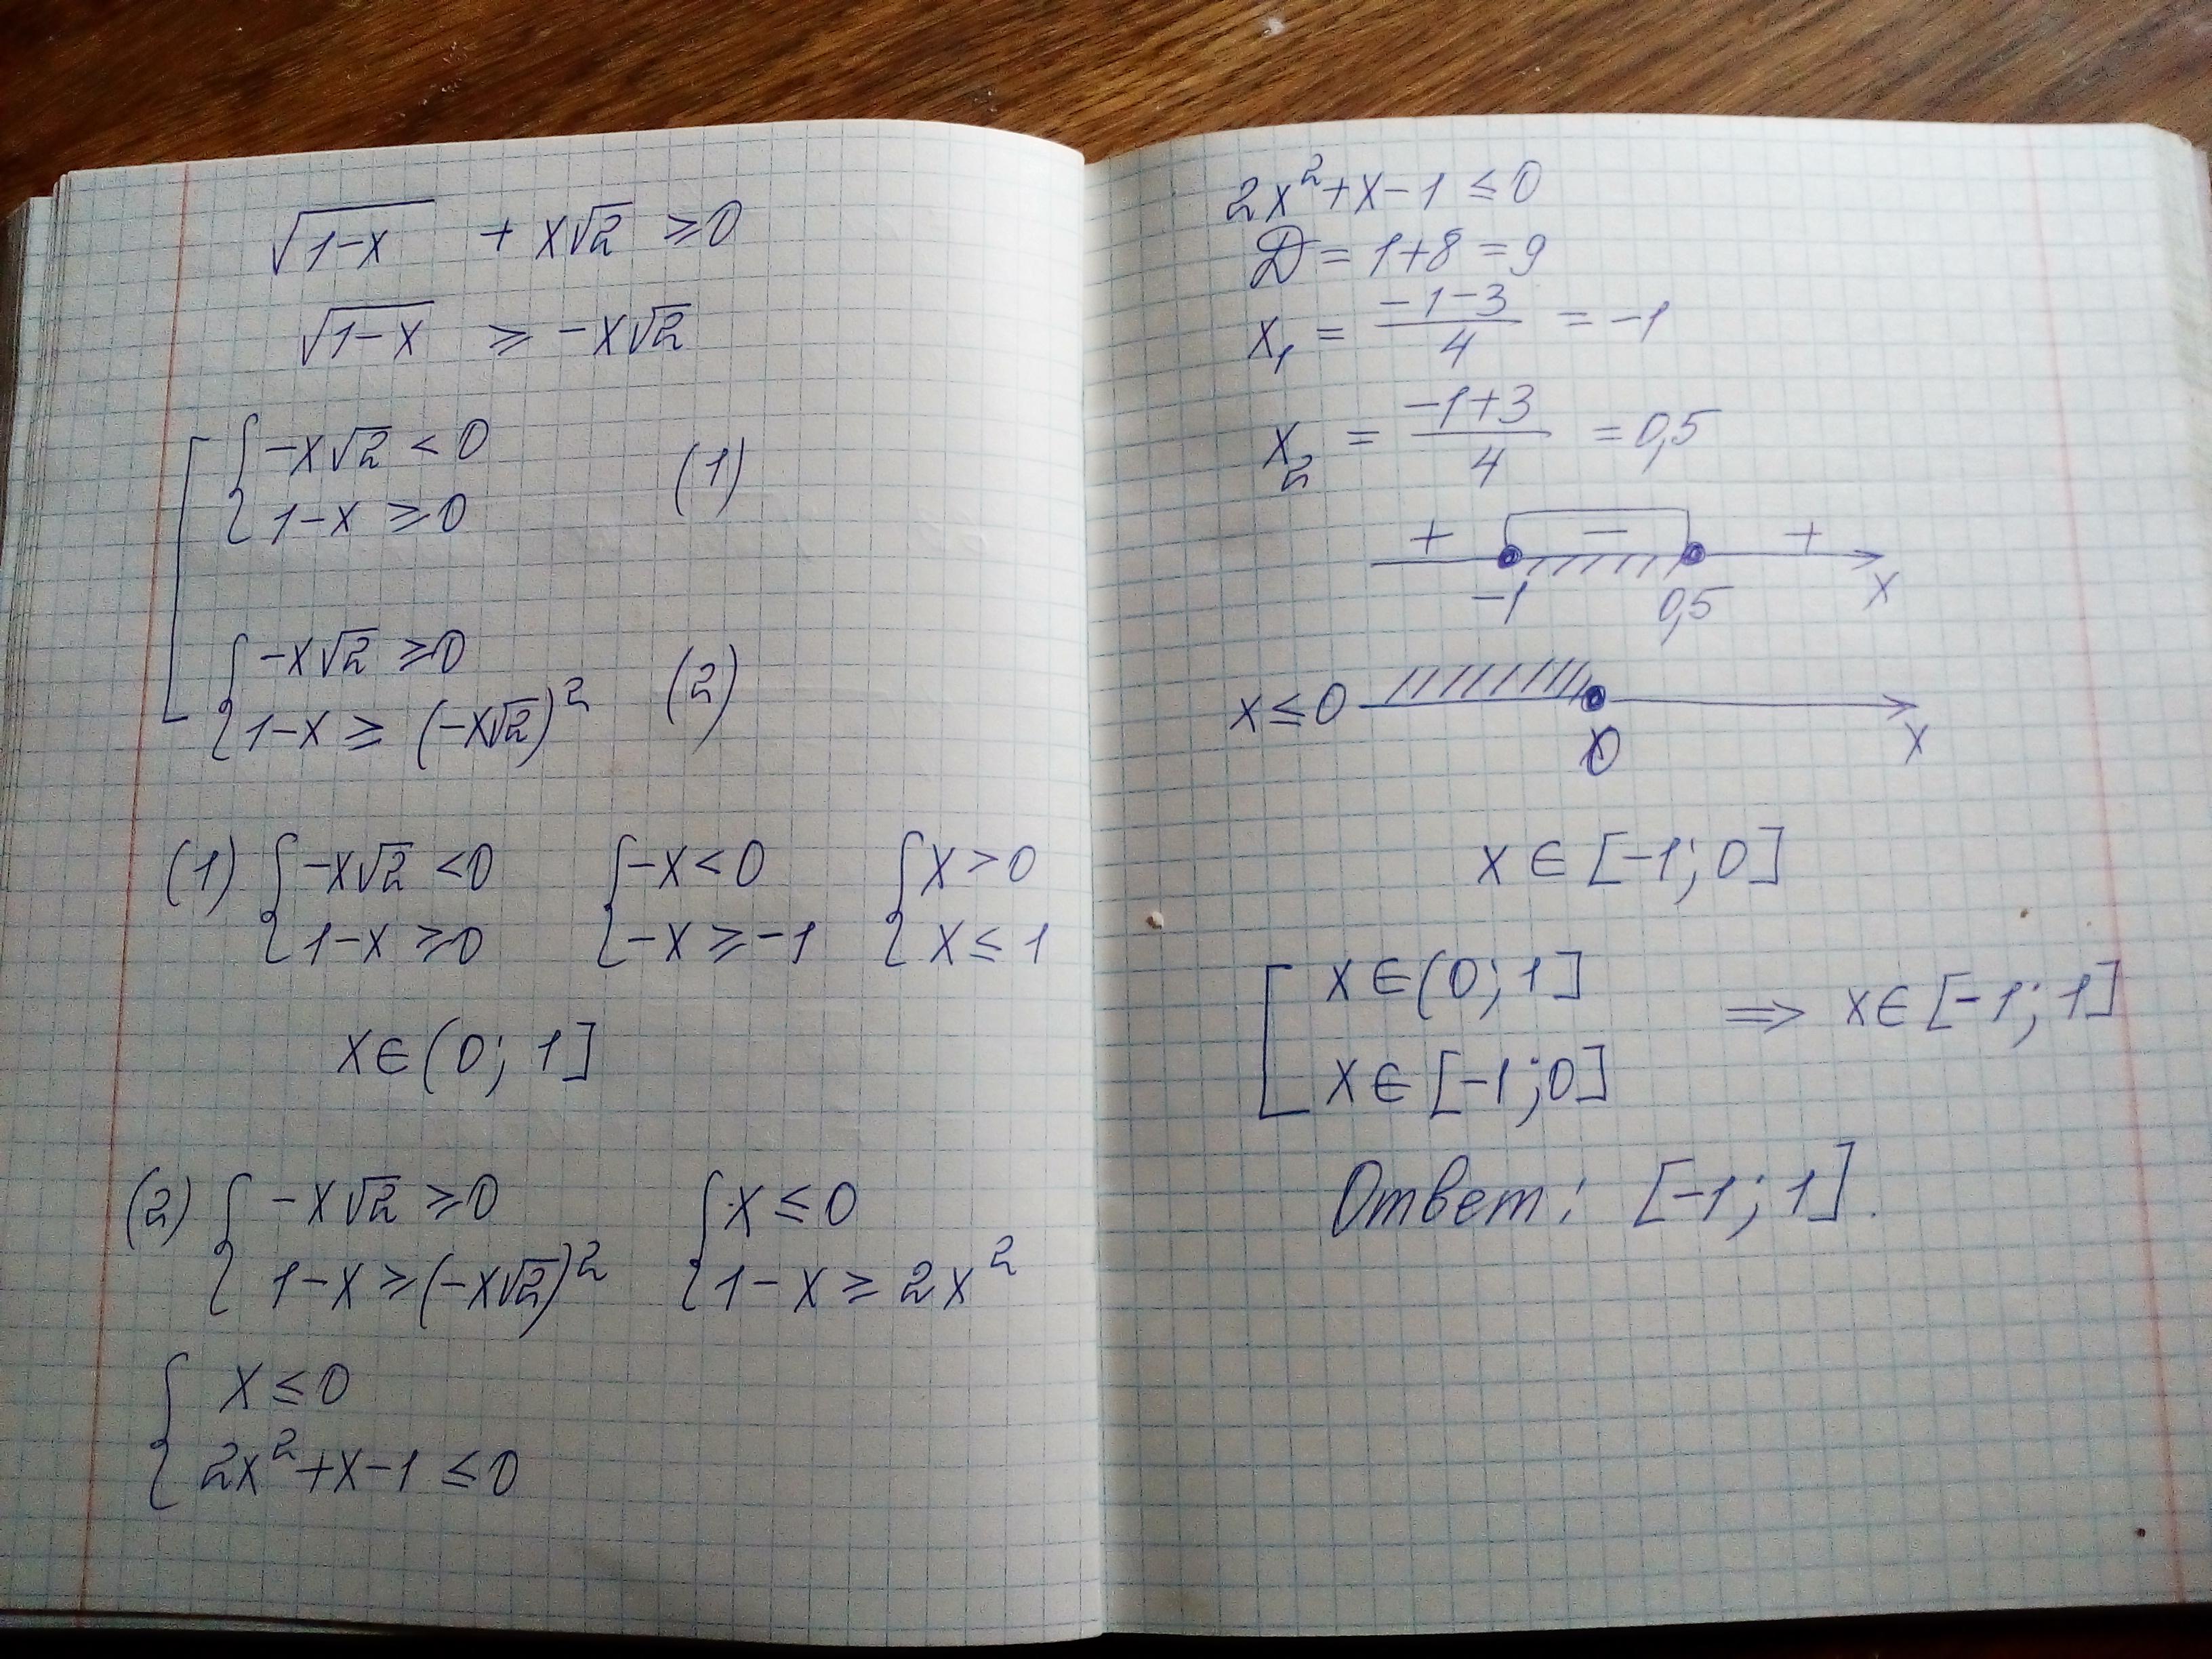 √(1-x) + x√2 ≥ 0
√(1-x) ≥ -x√2
[ { -x√2 < 0
1-x ≥ 0 (1)
{ -x√2 ≥ 0
1-x ≥ (-x√2)² (2)
(1) { -x√2 < 0 { -x < 0 { x > 0
1-x ≥ 0 -x ≥ -1 x ≤ 1
x ∈ (0; 1]
(2) { -x√2 ≥ 0 { x ≤ 0
1-x ≥ (-x√2)² 1-x ≥ 2x²
{ x ≤ 0
2x²+x-1 ≤ 0
2x²+x-1 ≤ 0
D = 1+8 = 9
x₁ = (-1-3)/4 = -1
x₂ = (-1+3)/4 = 0,5
+ - +
-1 0,5 x
x ≤ 0
0 x
x ∈ [-1; 0]
[ x ∈ (0; 1]
x ∈ [-1; 0] ⇒ x ∈ [-1; 1]
Ответ: [-1; 1].